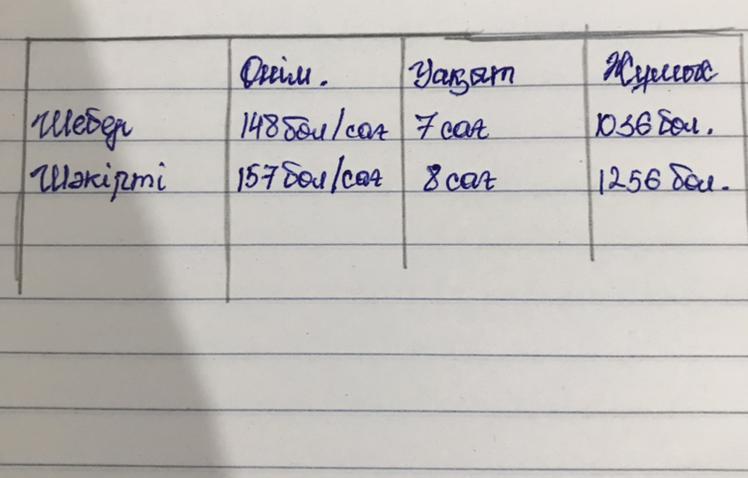 Өнім. Уақыт Жұмыс
Шебер 148 бөл/сағ 7 сағ 1036 бөл.
Шәкірті 157 бөл/сағ 8 сағ 1256 бөл.